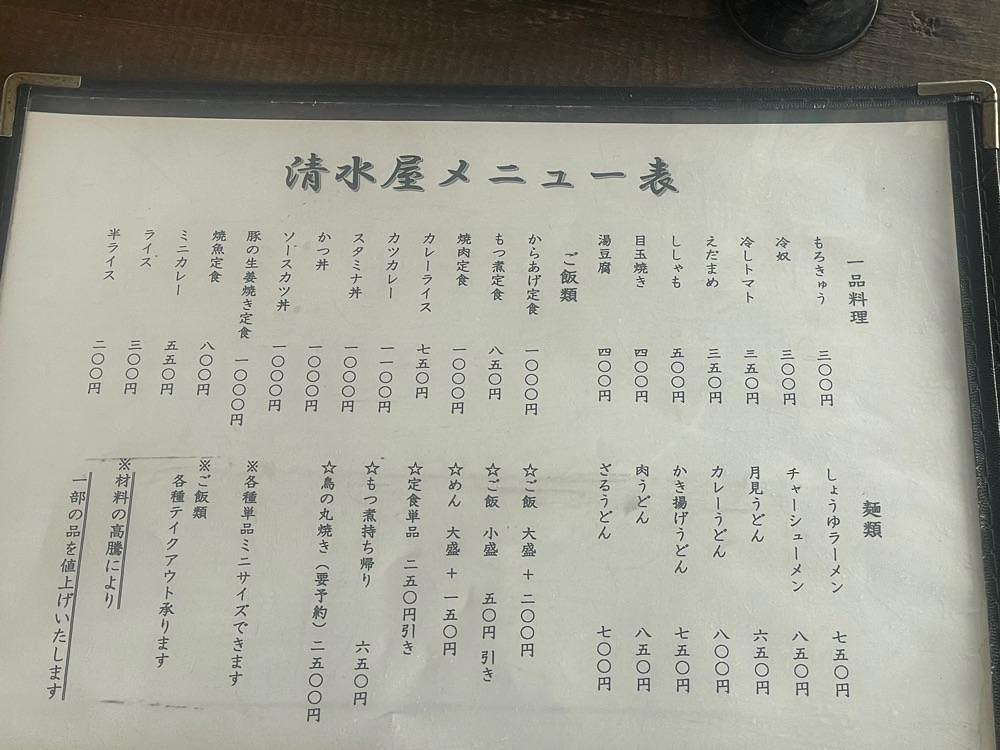 清水屋メニュー表
一品料理
もろきゅう 三〇〇円
冷奴 三〇〇円
冷しトマト 三五〇円
えだまめ 三五〇円
ししゃも 五〇〇円
目玉焼き 四〇〇円
湯豆腐 四〇〇円
ご飯類
からあげ定食 一〇〇〇円
もつ煮定食 八五〇円
焼肉定食 一〇〇〇円
カレーライス 七五〇円
カツカレー 一一〇〇円
スタミナ丼 一〇〇〇円
かつ丼 一〇〇〇円
ソースカツ丼 一〇〇〇円
豚の生姜焼き定食 一〇〇〇円
焼魚定食 八〇〇円
ミニカレー 五五〇円
ライス 三〇〇円
半ライス 二〇〇円
麺類
しょうゆラーメン 七五〇円
チャーシューメン 八五〇円
月見うどん 六五〇円
カレーうどん 八〇〇円
かき揚げうどん 七五〇円
肉うどん 八五〇円
ざるうどん 七〇〇円
☆ご飯 大盛 + 二〇〇円
☆ご飯 小盛 五〇円 引き
☆めん 大盛 + 一五〇円
☆定食単品 二五〇円引き
☆もつ煮持ち帰り 六五〇円
☆鳥の丸焼き(要予約) 二五〇〇円
※各種単品ミニサイズできます
※ご飯類
各種テイクアウト承ります
※材料の高騰により
一部の品を値上げいたします